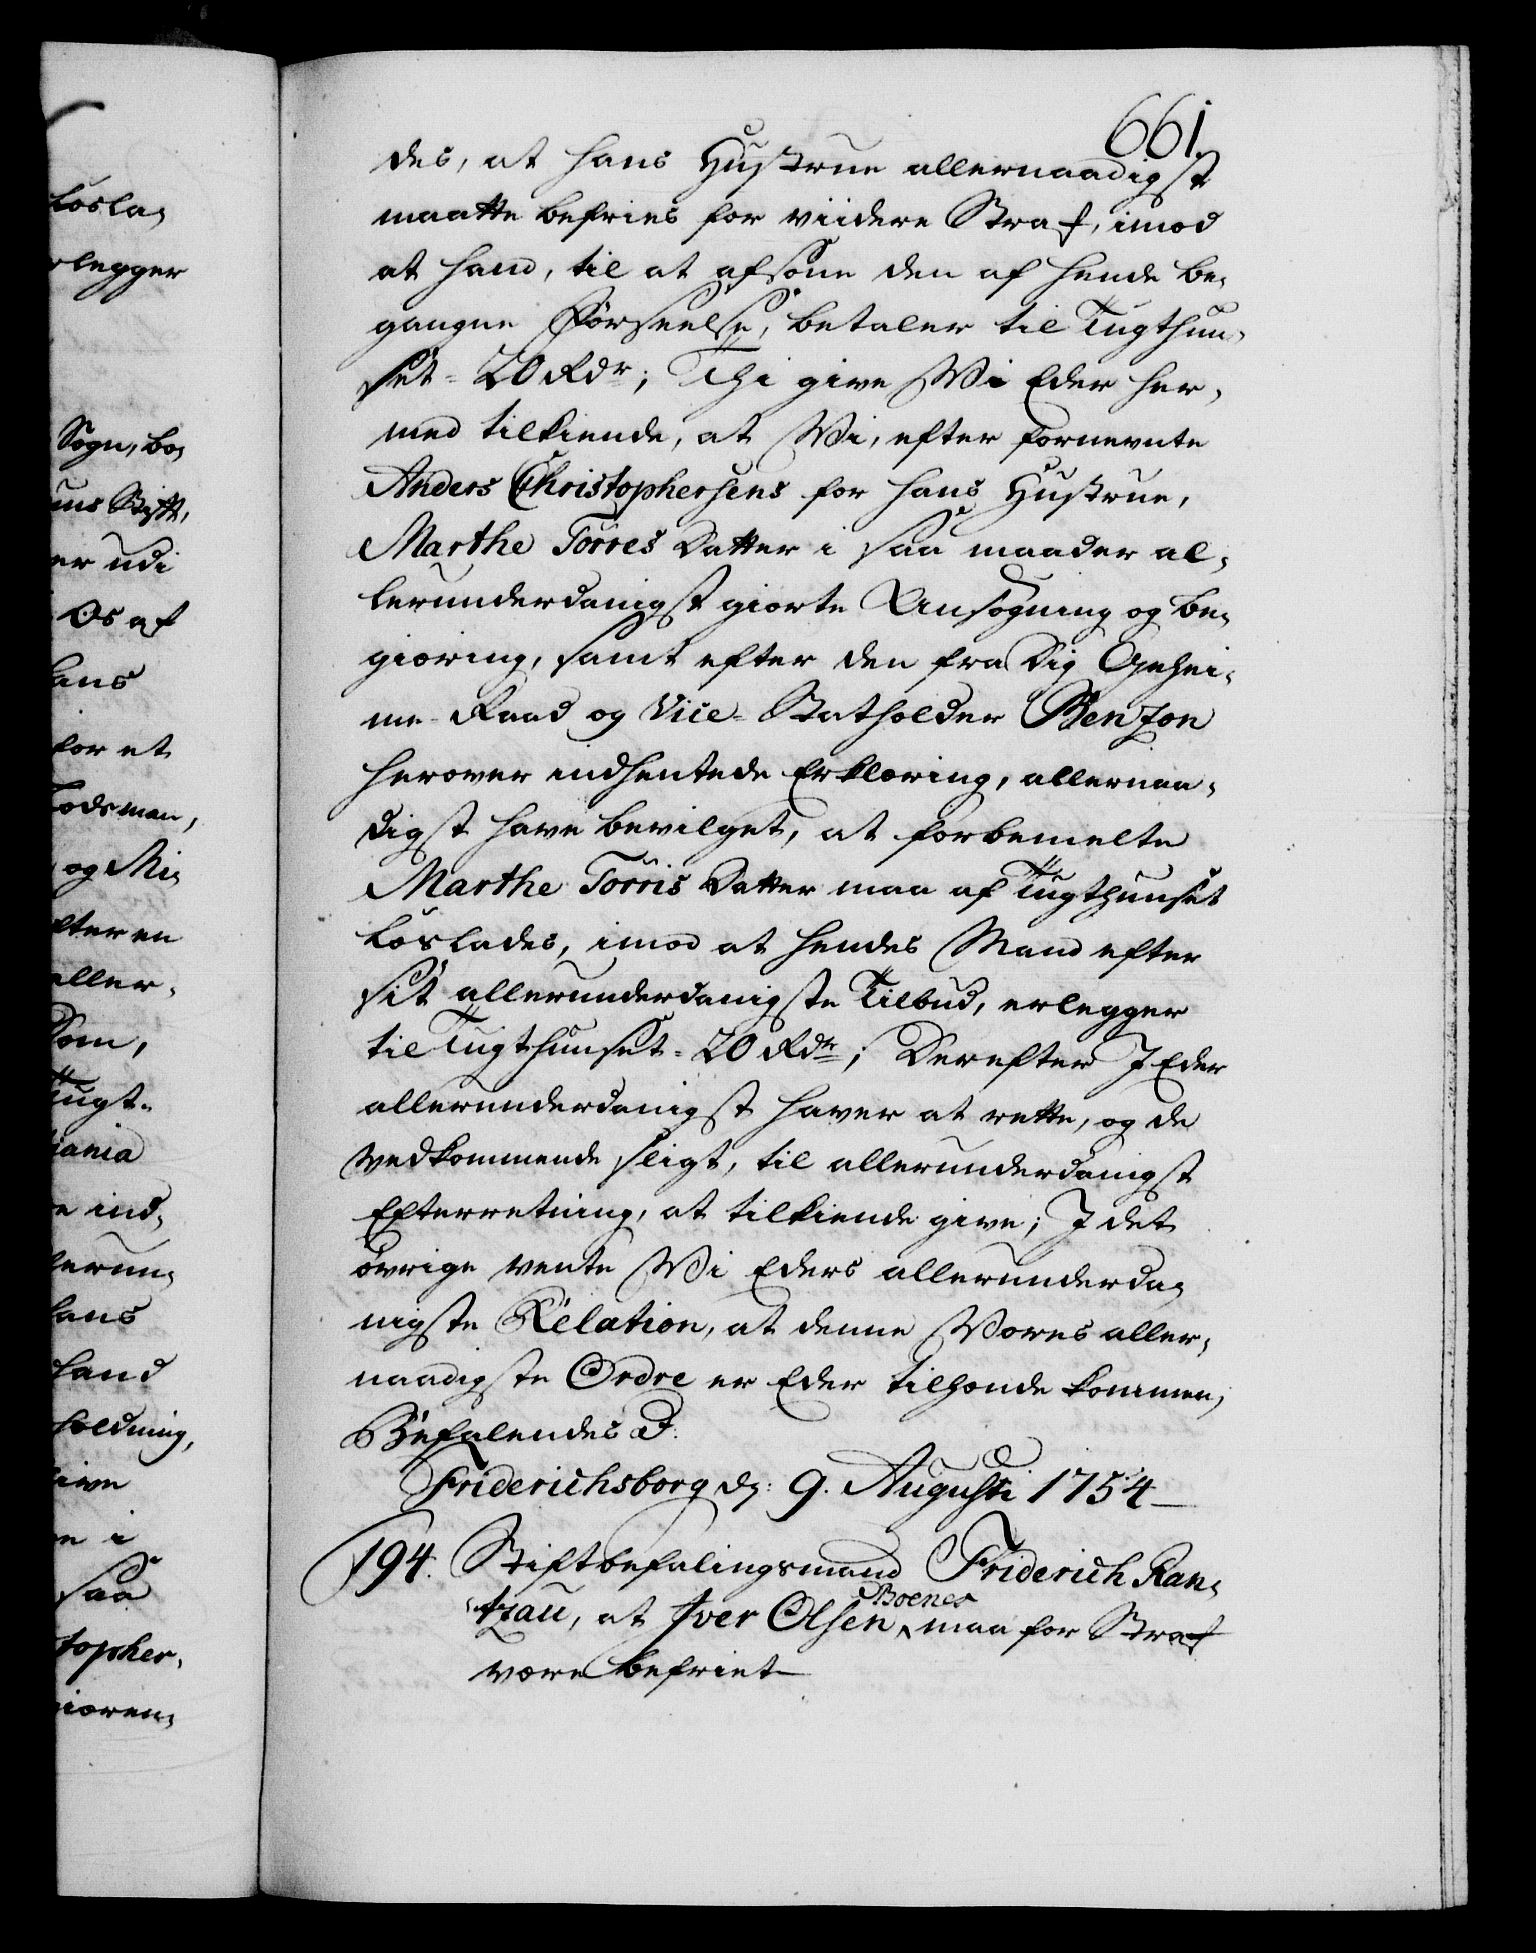 661.
des, at hans Hustrue allernaadigst
maatte befries for viidere Straf, imod
at hand, til at afsone den af hende be-
gangne Forseelse, betaler til Tugthuu-
set = 20 Rdr; Thi give Wi Eder her-
med tilkiende, at Wi, efter fornevnte
Anders Christophersens for hans Hustrue,
Marthe Torres Datter i saa maader al-
lerunderdanigst giorte Ansøgning og be-
giæring, samt efter den fra Dig Gehei-
me-Raad og Vice-Statholder Benzon
herover indhentede Erklæring, allernaa-
digst have bevilget, at forbemelte
Marthe Torris Datter maa af Tugthuuset
løslades, imod at hendes Mand efter
sit allerunderdanigste Tilbud, erlegger
til Tugthuuset = 20 Rdr; Derefter I Eder
allerunderdanigst haver at rette, og de
vedkommende sligt, til allerunderdanigst
Efterretning, at tilkiende give; I det
øvrige vente Wi Eders allerunderda-
nigste Relation, at denne Vores aller-
naadigste Ordre er Eder tilhænde kommen,
Befalendes d:
Friderichsborg dς: 9. Augusti 1754
194. Stiftbefalingsmand Friderich Ran-
tzau, at Iver Olsen Boenes maa for Straf
være befriet
løsla-
rlegger
Sogn, bo-
uus Stift,
er udi
Os af
hans
for et
Lodsman,
og Mi-
fter en
aller-
Dom,
Tugt-
tiania
e ind-
lerun-
hans
hand
holdning,
give
e i
saa
topher-
giæren-